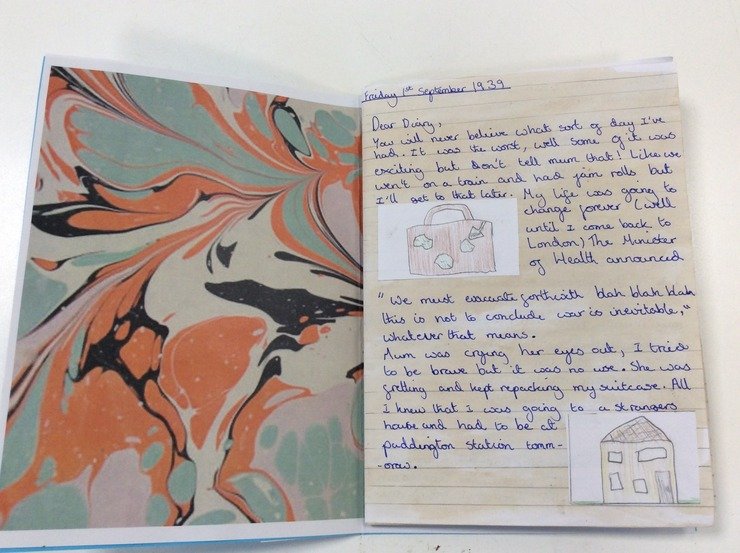 Friday 1st September 1939
Dear Diary,
You will never believe what sort of day I've
had. It was the worst, well some of it was
exciting but don't tell mum that! Like we
went on a train and had jam rolls but
I'll get to that later. My life was going to
change forever (well
until I come back to
London) The Minister
of Health announced
"We must evacuate forthwith blah blah blah
this is not to conclude war is inevitable,"
whatever that means.
Mum was crying her eyes out, I tried
to be brave but it was no use. She was
fretting and kept repacking my suitcase. All
I knew that I was going to a strangers
house and had to be at
paddington station tomm-
-orow.